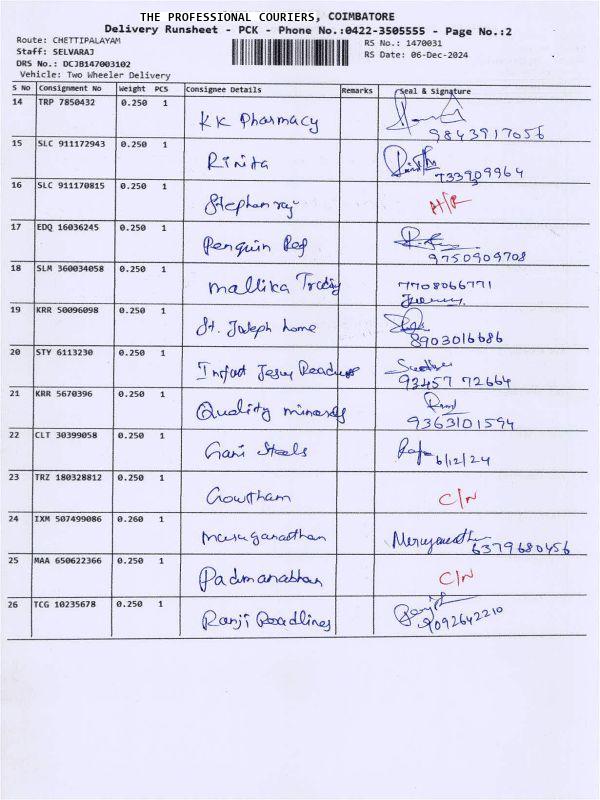 THE PROFESSIONAL COURIERS, COIMBATORE
Delivery Runsheet - PCK - Phone No.:0422-3505555 - Page No.:2
Route: CHETTIPALAYAM RS No.: 1470031
Staff: SELVARAJ RS Date: 06-Dec-2024
DRS No.: DCJB147003102
Vehicle: Two Wheeler Delivery
S No Consignment No Weight PCS Consignee Details Remarks Seal & Signature
14 TRP 7850432 0.250 1 KK Pharmacy 9843917056
15 SLC 911172943 0.250 1 Rinita 733909964
16 SLC 911170815 0.250 1 Stephanraj
17 EDQ 16036245 0.250 1 Penguin 9750909708
18 SLM 360034058 0.250 1 Mallika 7708066771
19 KRR 50096098 0.250 1 St. Joseph home 8903016686
20 STY 6113230 0.250 1 Infant Jesus 93457 72664
21 KRR 5670396 0.250 1 Quality 9363101594
22 CLT 30399058 0.250 1 Gani Steels Raja 6/12/24
23 TRZ 180328812 0.250 1 Gowtham C/N
24 IXM 507499086 0.260 1 Muruganandhan 6379680456
25 MAA 650622366 0.250 1 Padmanabhan C/N
26 TCG 10235678 0.250 1 Ranji Roadlines 9092642210